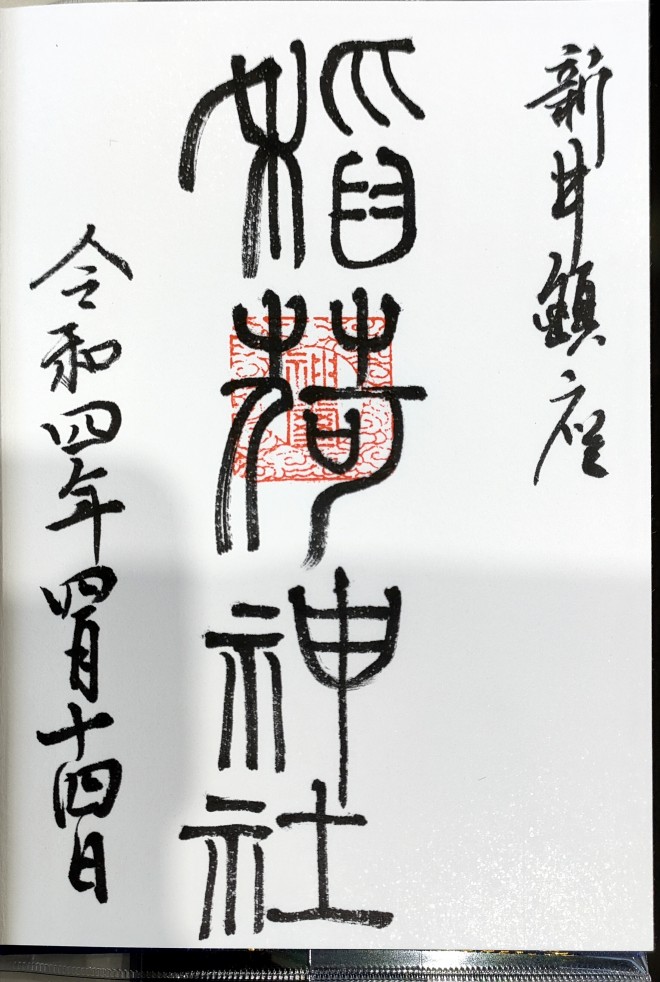 新井鎮座
稲荷神社
令和四年四月十四日